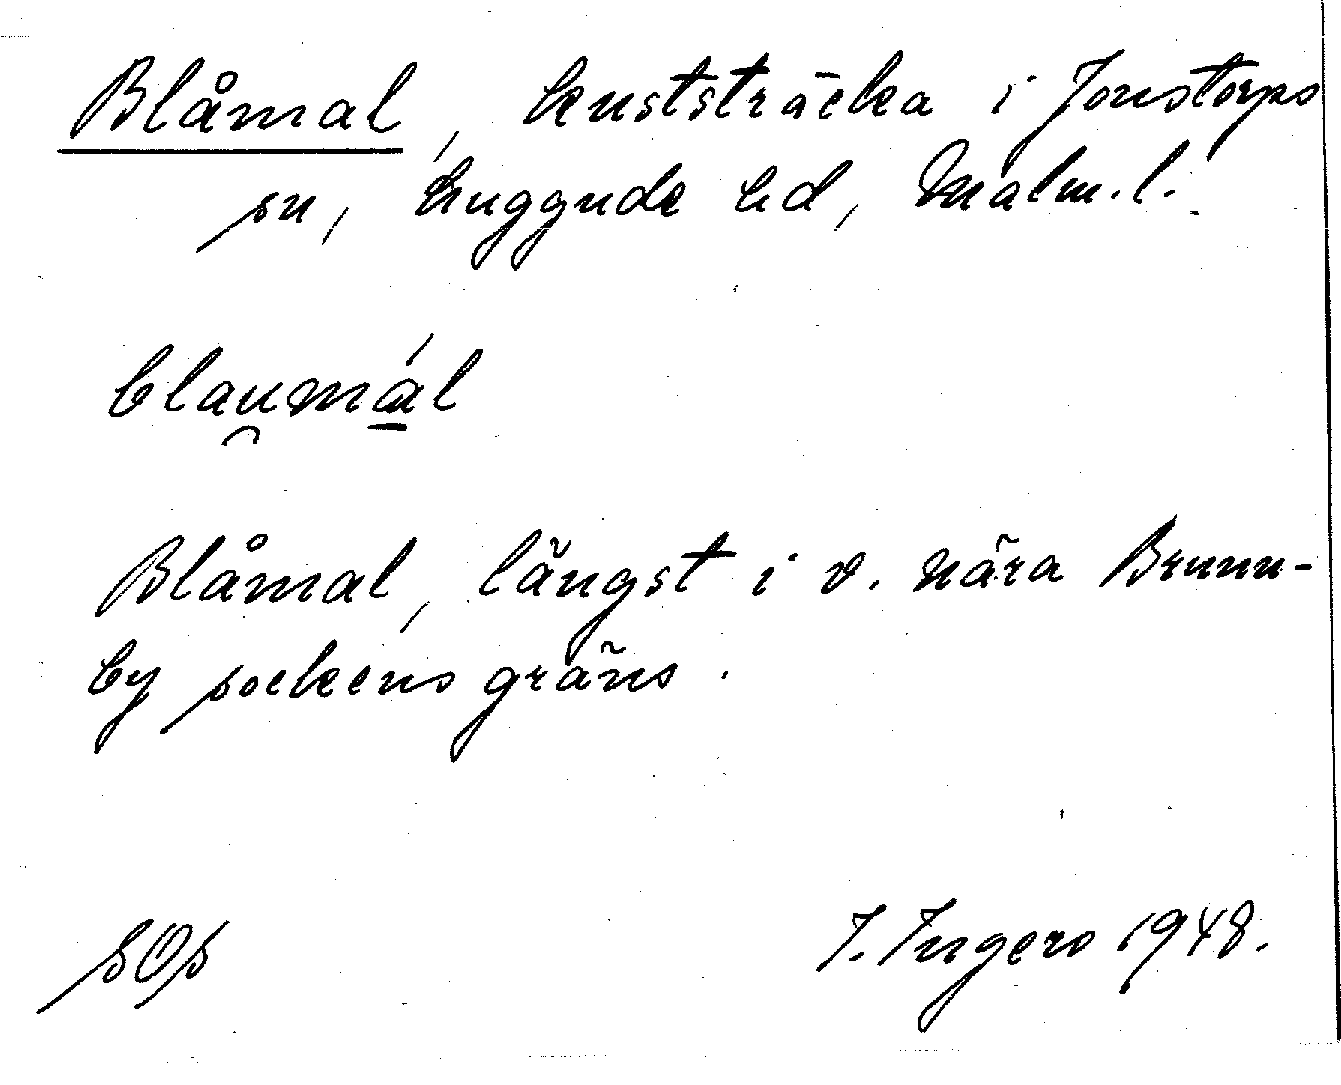 Blåmal, kuststräcka i Jonstorps
sn, Luggude hd, Malm. l.
blau̯mál
Blåmal, längst i v. nära Brunn-
by sockens gräns.
SOS
I. Ingers 1948.